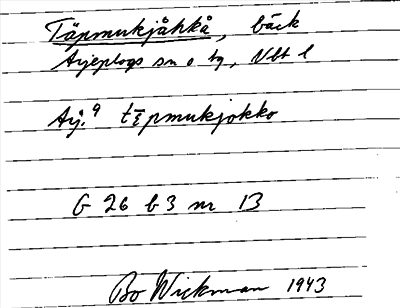 Täpmukjåhkå, bäck
Arjeplogs sn o tg, Vbt l
Arj. 9 tēpmukjokko
G 26 b 3 nr 13
Bo Wickman 1943